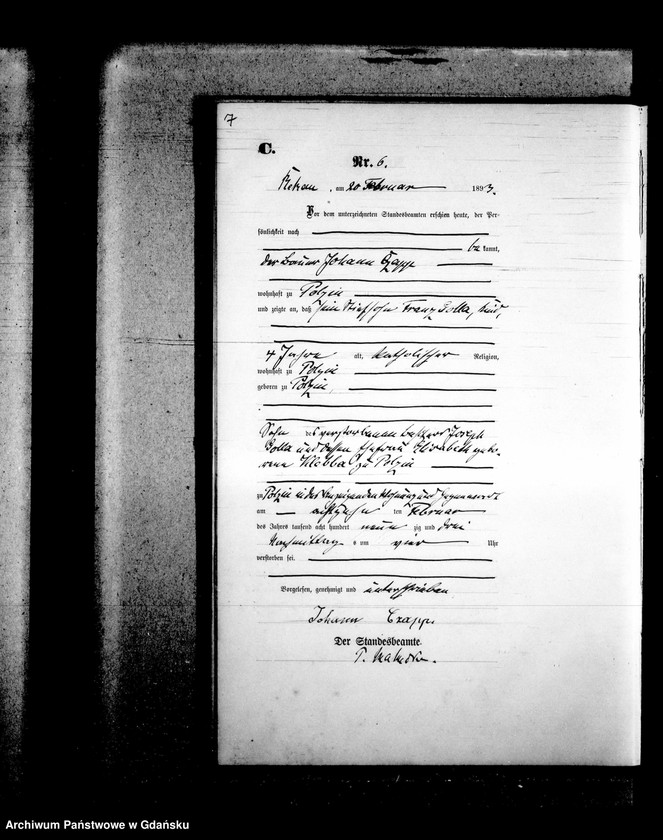 7
C.
Nr. 6.
Rekau, am 20 Februar 1893.
Vor dem unterzeichneten Standesbeamten erschien heute, der Per-
sönlichkeit nach
bekannt,
der Bauer Johann Czapp
wohnhaft zu Polzin
und zeigte an, daß sein Stiefsohn Franz Golla, Kind,
4 Jahre alt, katholischer Religion,
wohnhaft zu Polzin
geboren zu Polzin,
Sohn des verstorbenen Joseph
Golla und dessen Ehefrau Elisabeth gebo-
rene Klebba zu Polzin
zu Polzin in des Anzeigenden Wohnung und Gegenwart
am ten Februar
des Jahres tausend acht hundert neunzig und drei
Nachmittags um vier Uhr
verstorben sei.
Vorgelesen, genehmigt und unterschrieben
Johann Czapp.
Der Standesbeamte.
Archiwum Państwowe w Gdańsku